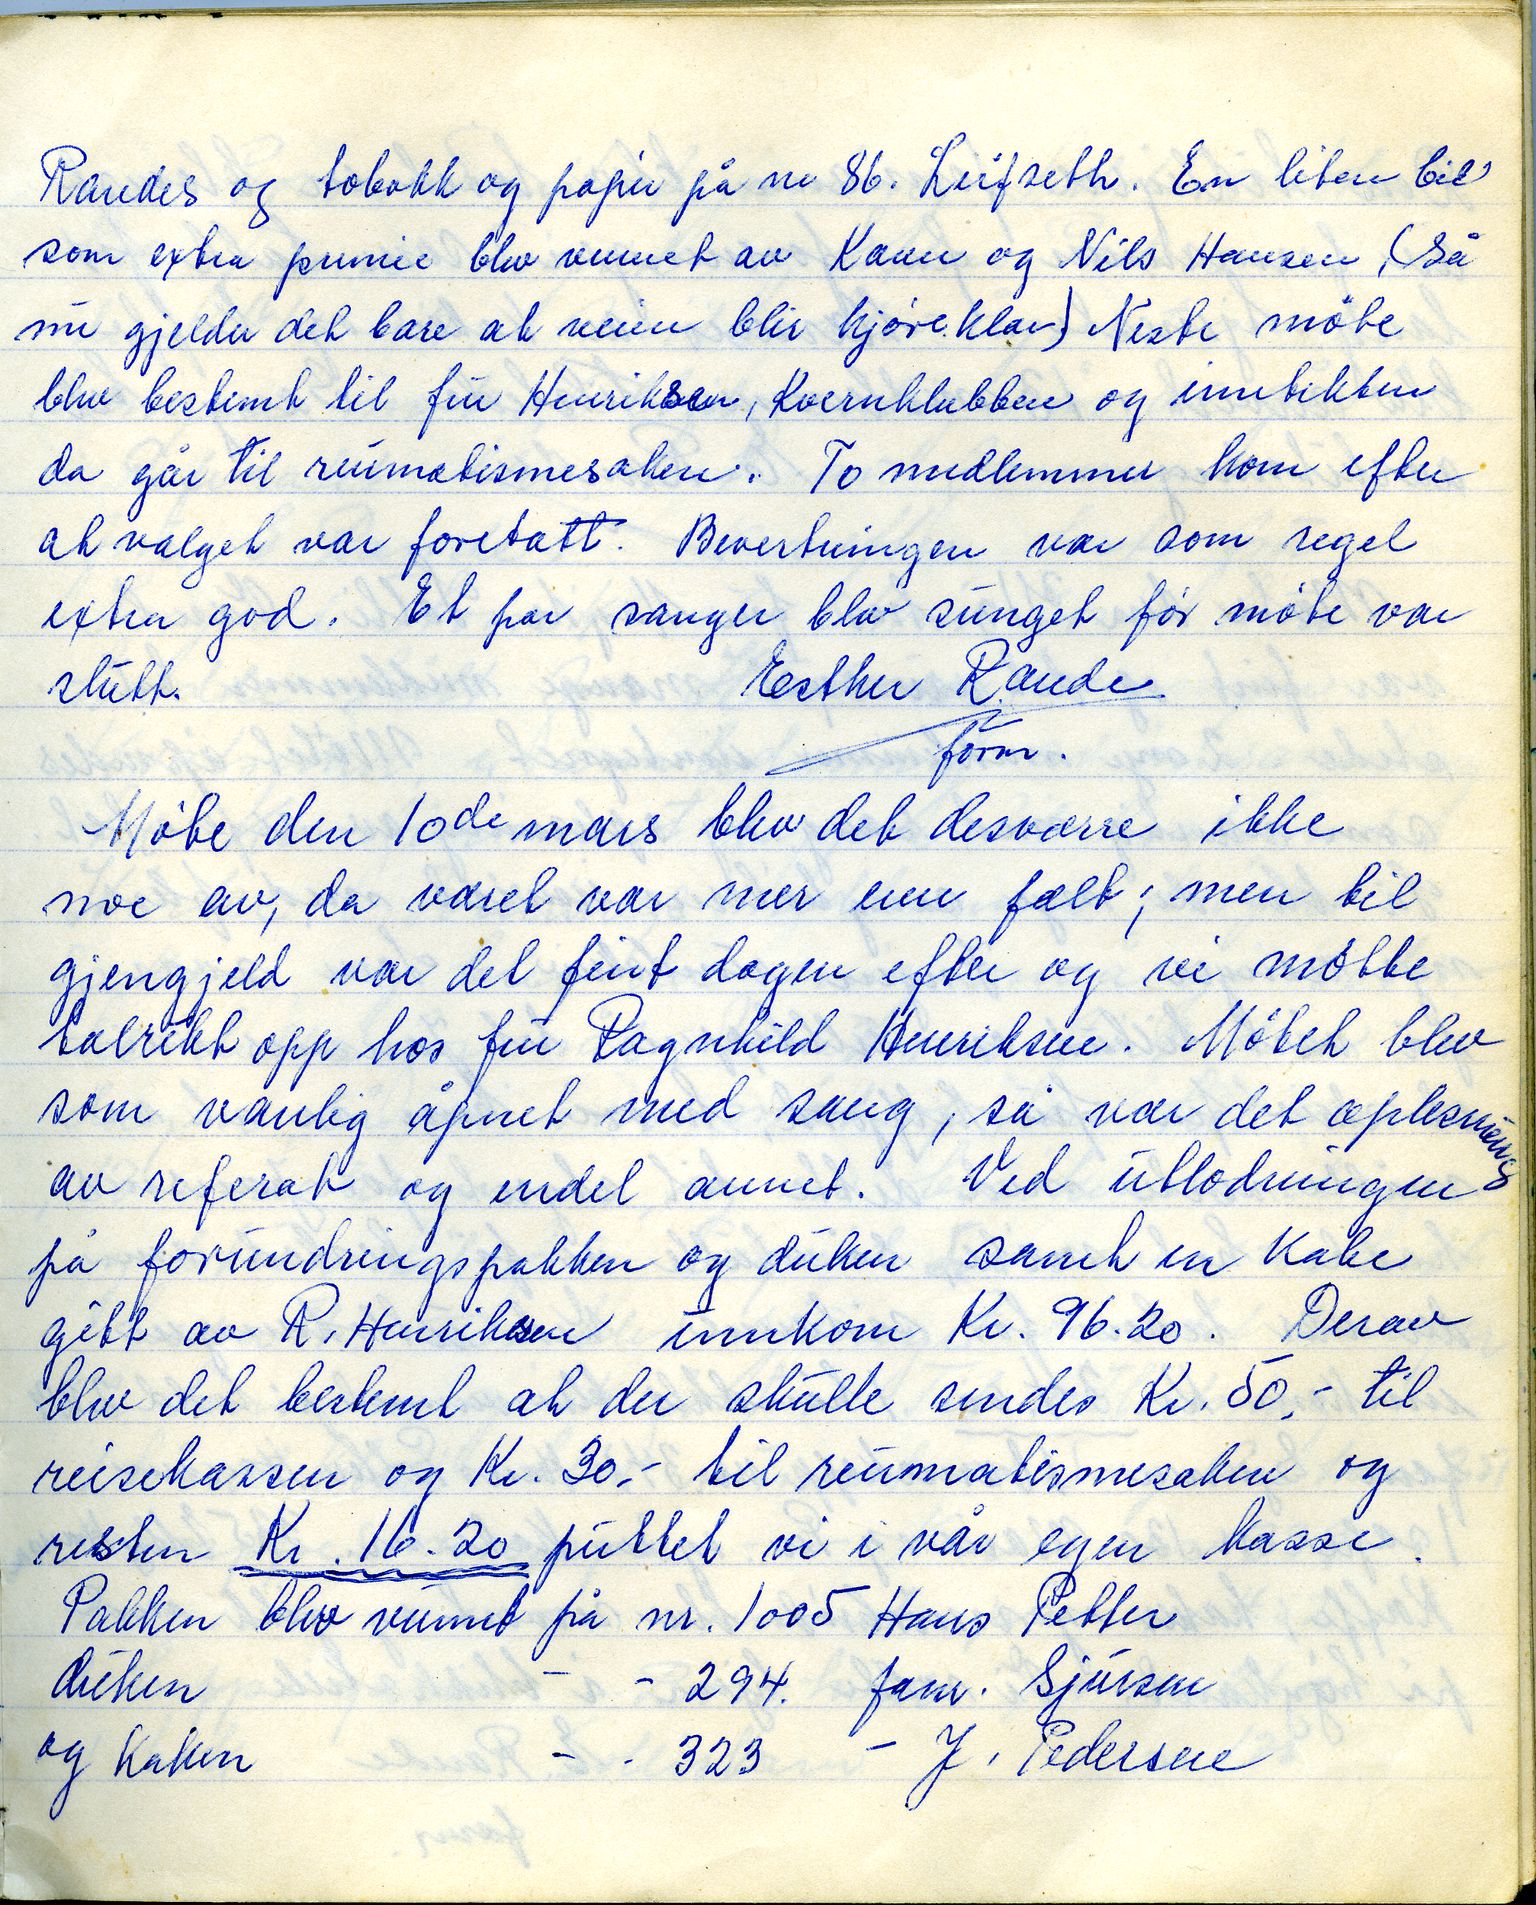 Randes og tobakk og papir på nr 86. Leifseth. En liten bil
som extra premie blev vunnet av Kaare og Nils Hansen, (Så
nu gjelder det bare at veien blir kjøreklar) Neste møte
blev bestemt til fru Henriksen, Kvernklubben og inntekten
da går til reumatismesaken. To medlemmer kom efter
at valget var foretatt. Bevertningen var som regel
extra god. Et par sanger blev sunget før møte var
slutt. Esther Rande
form.
Møte den 10de mars blev det desværre ikke
noe av, da været var mer enn fælt; men til
gjengjeld var det fint dagen efter og vi møtte
talrikt opp hos fru Ragnhild Henriksen. Møtet blev
som vanlig åpnet med sang, så var det oplesning
av referat og endel annet. Ved utlodningen
på forundringspakken og duken samt en kake
gitt av R. Henriksen innkom Kr. 96.20. Derav
blev det bestemt at der skulle sendes Kr. 50,- til
reisekassen og Kr. 30,- til reumatismesaken og
resten Kr. 16.20 puttet vi i vår egen kasse.
Pakken blev vunnet på nr. 1005 Hans Petter
duken - - 294. fam. Sjursen
og kaken - - 323 - J. Pedersen